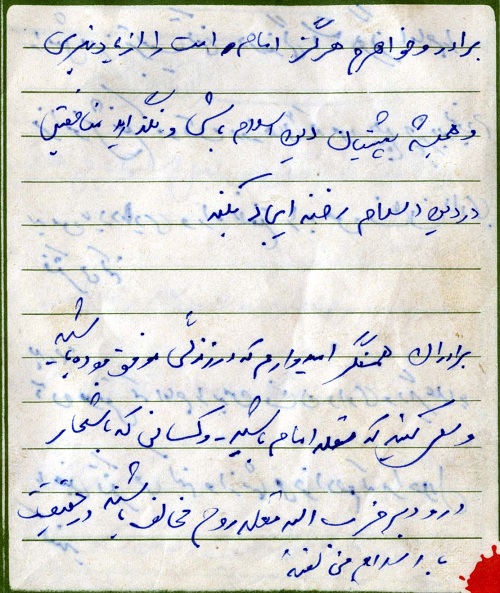 برادر و خواهرم هرگز امام و امت را از یاد نبری
و همیشه پشتیبان دین اسلام باش و نگذارید منافقین
در دین اسلام رخنه ایجاد بکنند
برادران همسنگر امیدوارم که در زندگی موفق بوده باشید
و سعی کنید که مقلد امام باشید - و کسانی که با شعار
درود بر حزب الله مقلد روح مخالف باشند در حقیقت
با اسلام مخالفند